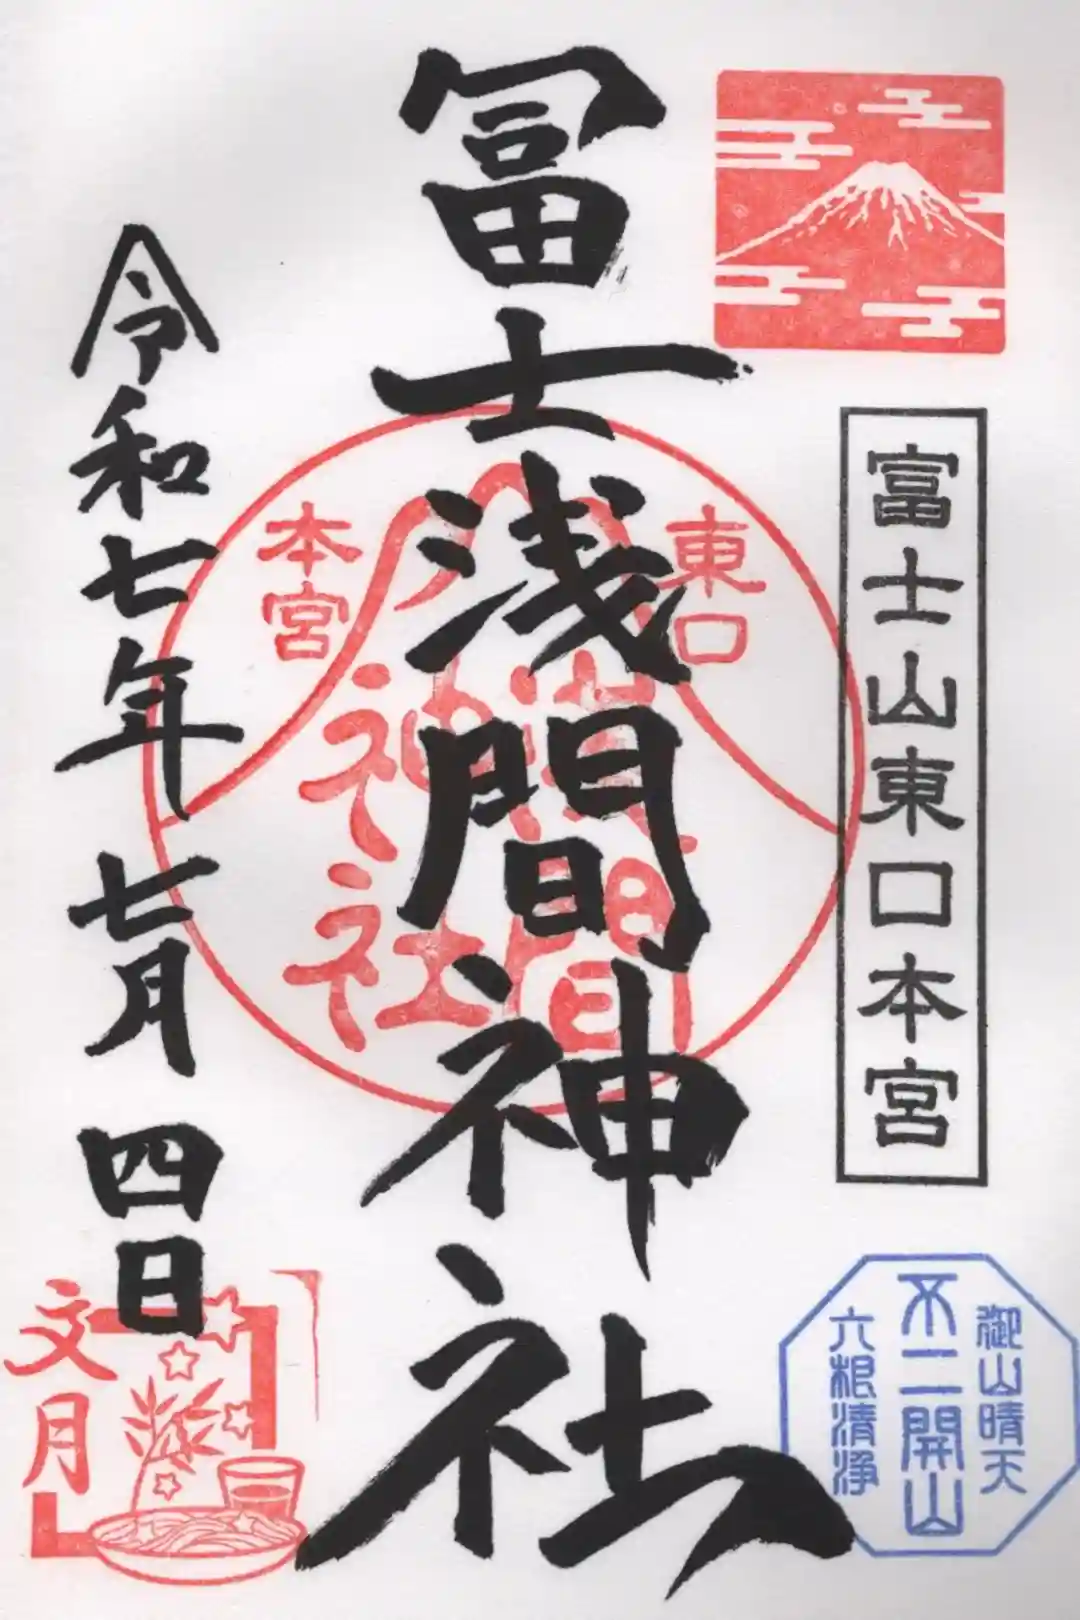 富士山東口本宮
御山晴天
不二開山
六根清浄
冨士浅間神社
東口
本宮
浅間
神社
令和七年 七月 四日
文月